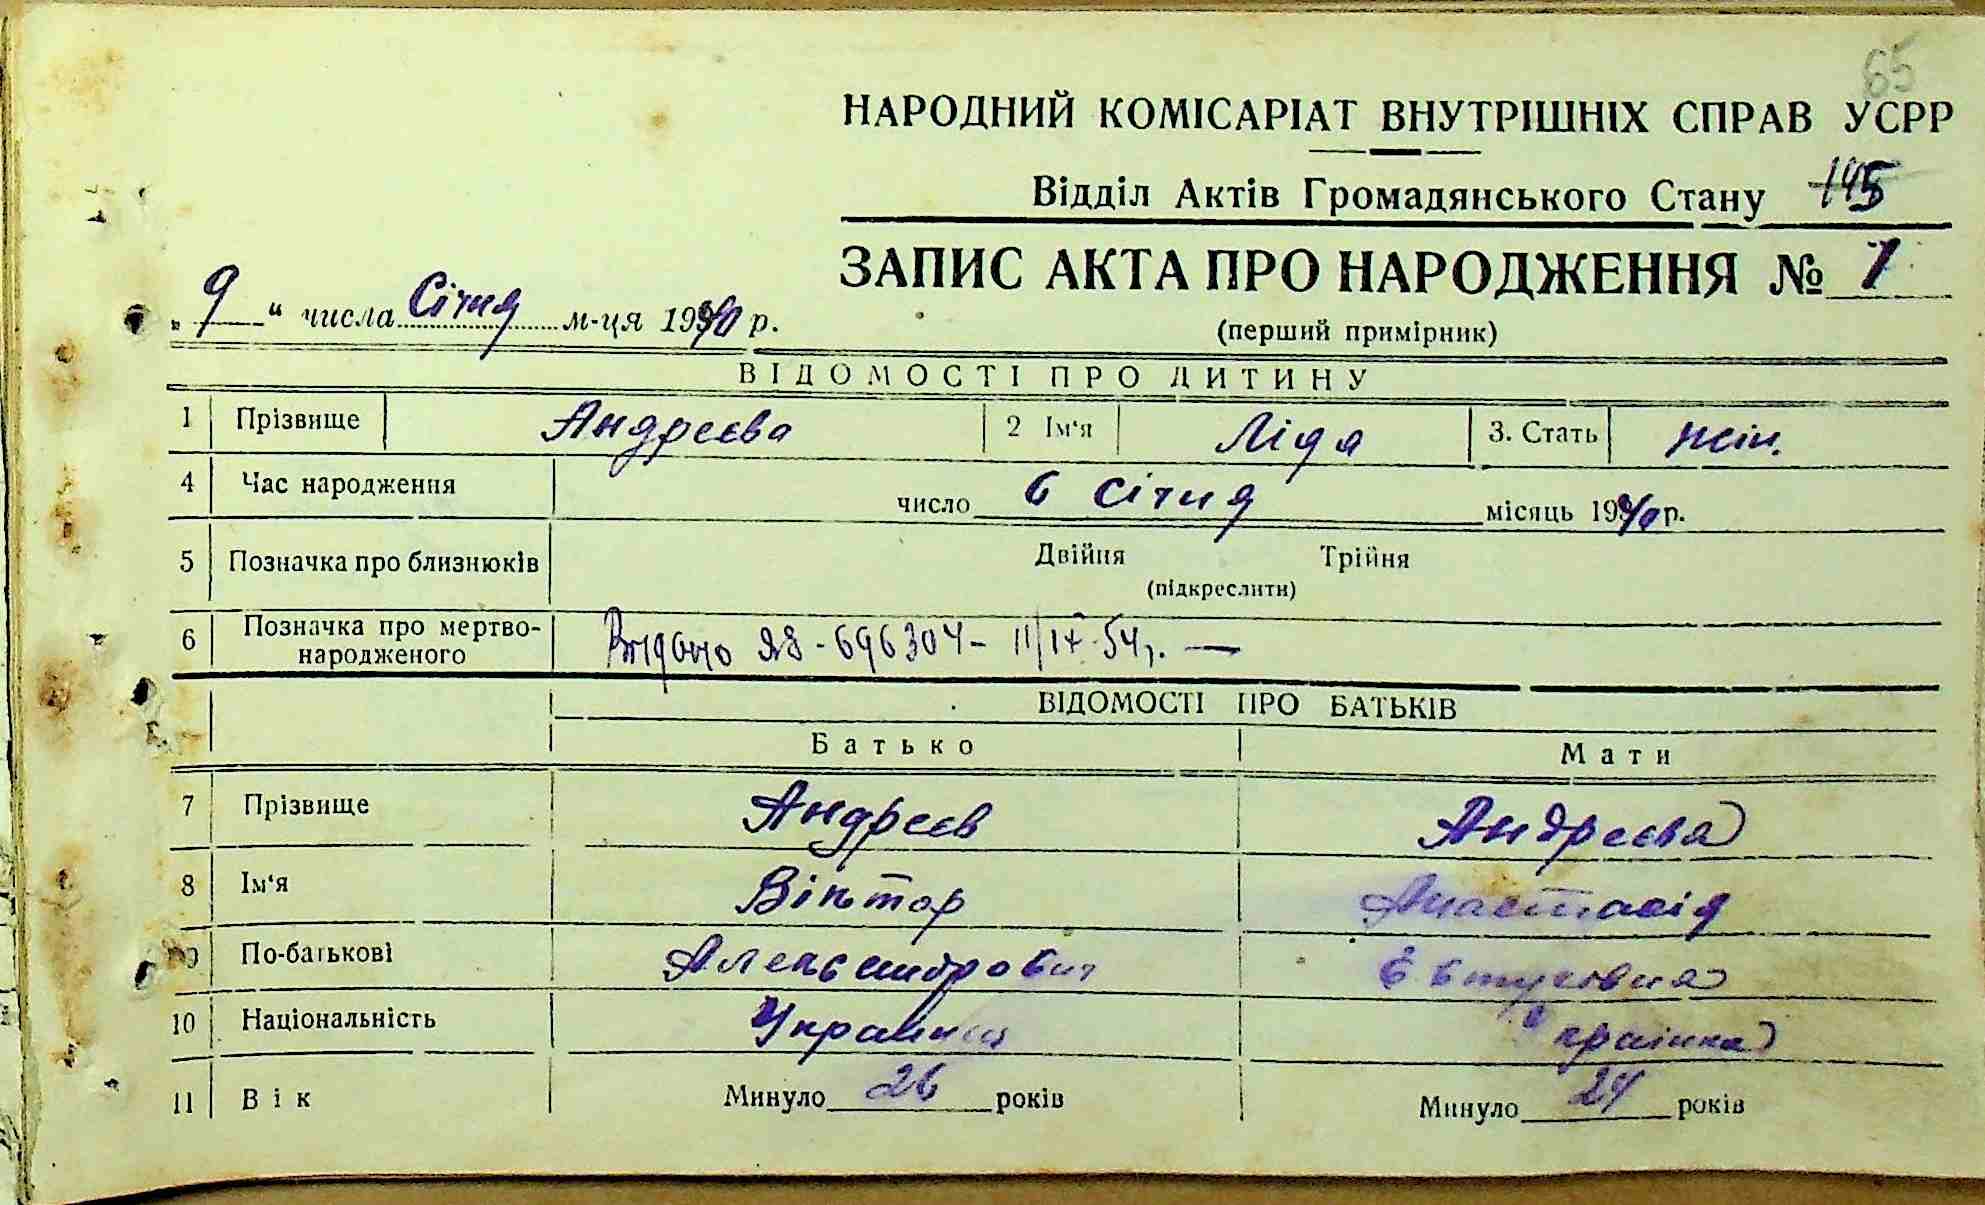 65
НАРОДНИЙ КОМІСАРІАТ ВНУТРІШНІХ СПРАВ УСРР
Відділ Актів Громадянського Стану 145
ЗАПИС АКТА ПРО НАРОДЖЕННЯ № 1
„9“ числа Січня м-ця 1940 р.
(перший примірник)
ВІДОМОСТІ ПРО ДИТИНУ
1 Прізвище Андреєва 2 Ім'я Ліда 3. Стать жін.
4 Час народження число 6 Січня місяць 1940 р.
5 Позначка про близнюків Двійня Трійня
(підкреслити)
6 Позначка про мертво-
народженого Видано ЯЯ-696304- 11/IX-54р. —
ВІДОМОСТІ ПРО БАТЬКІВ
Батько Мати
7 Прізвище Андреєв Андреєва
8 Ім'я Віктор Анастасія
9 По-батькові Александрович
10 Національність Українец Українка
11 Вік Минуло 26 років Минуло 24 років